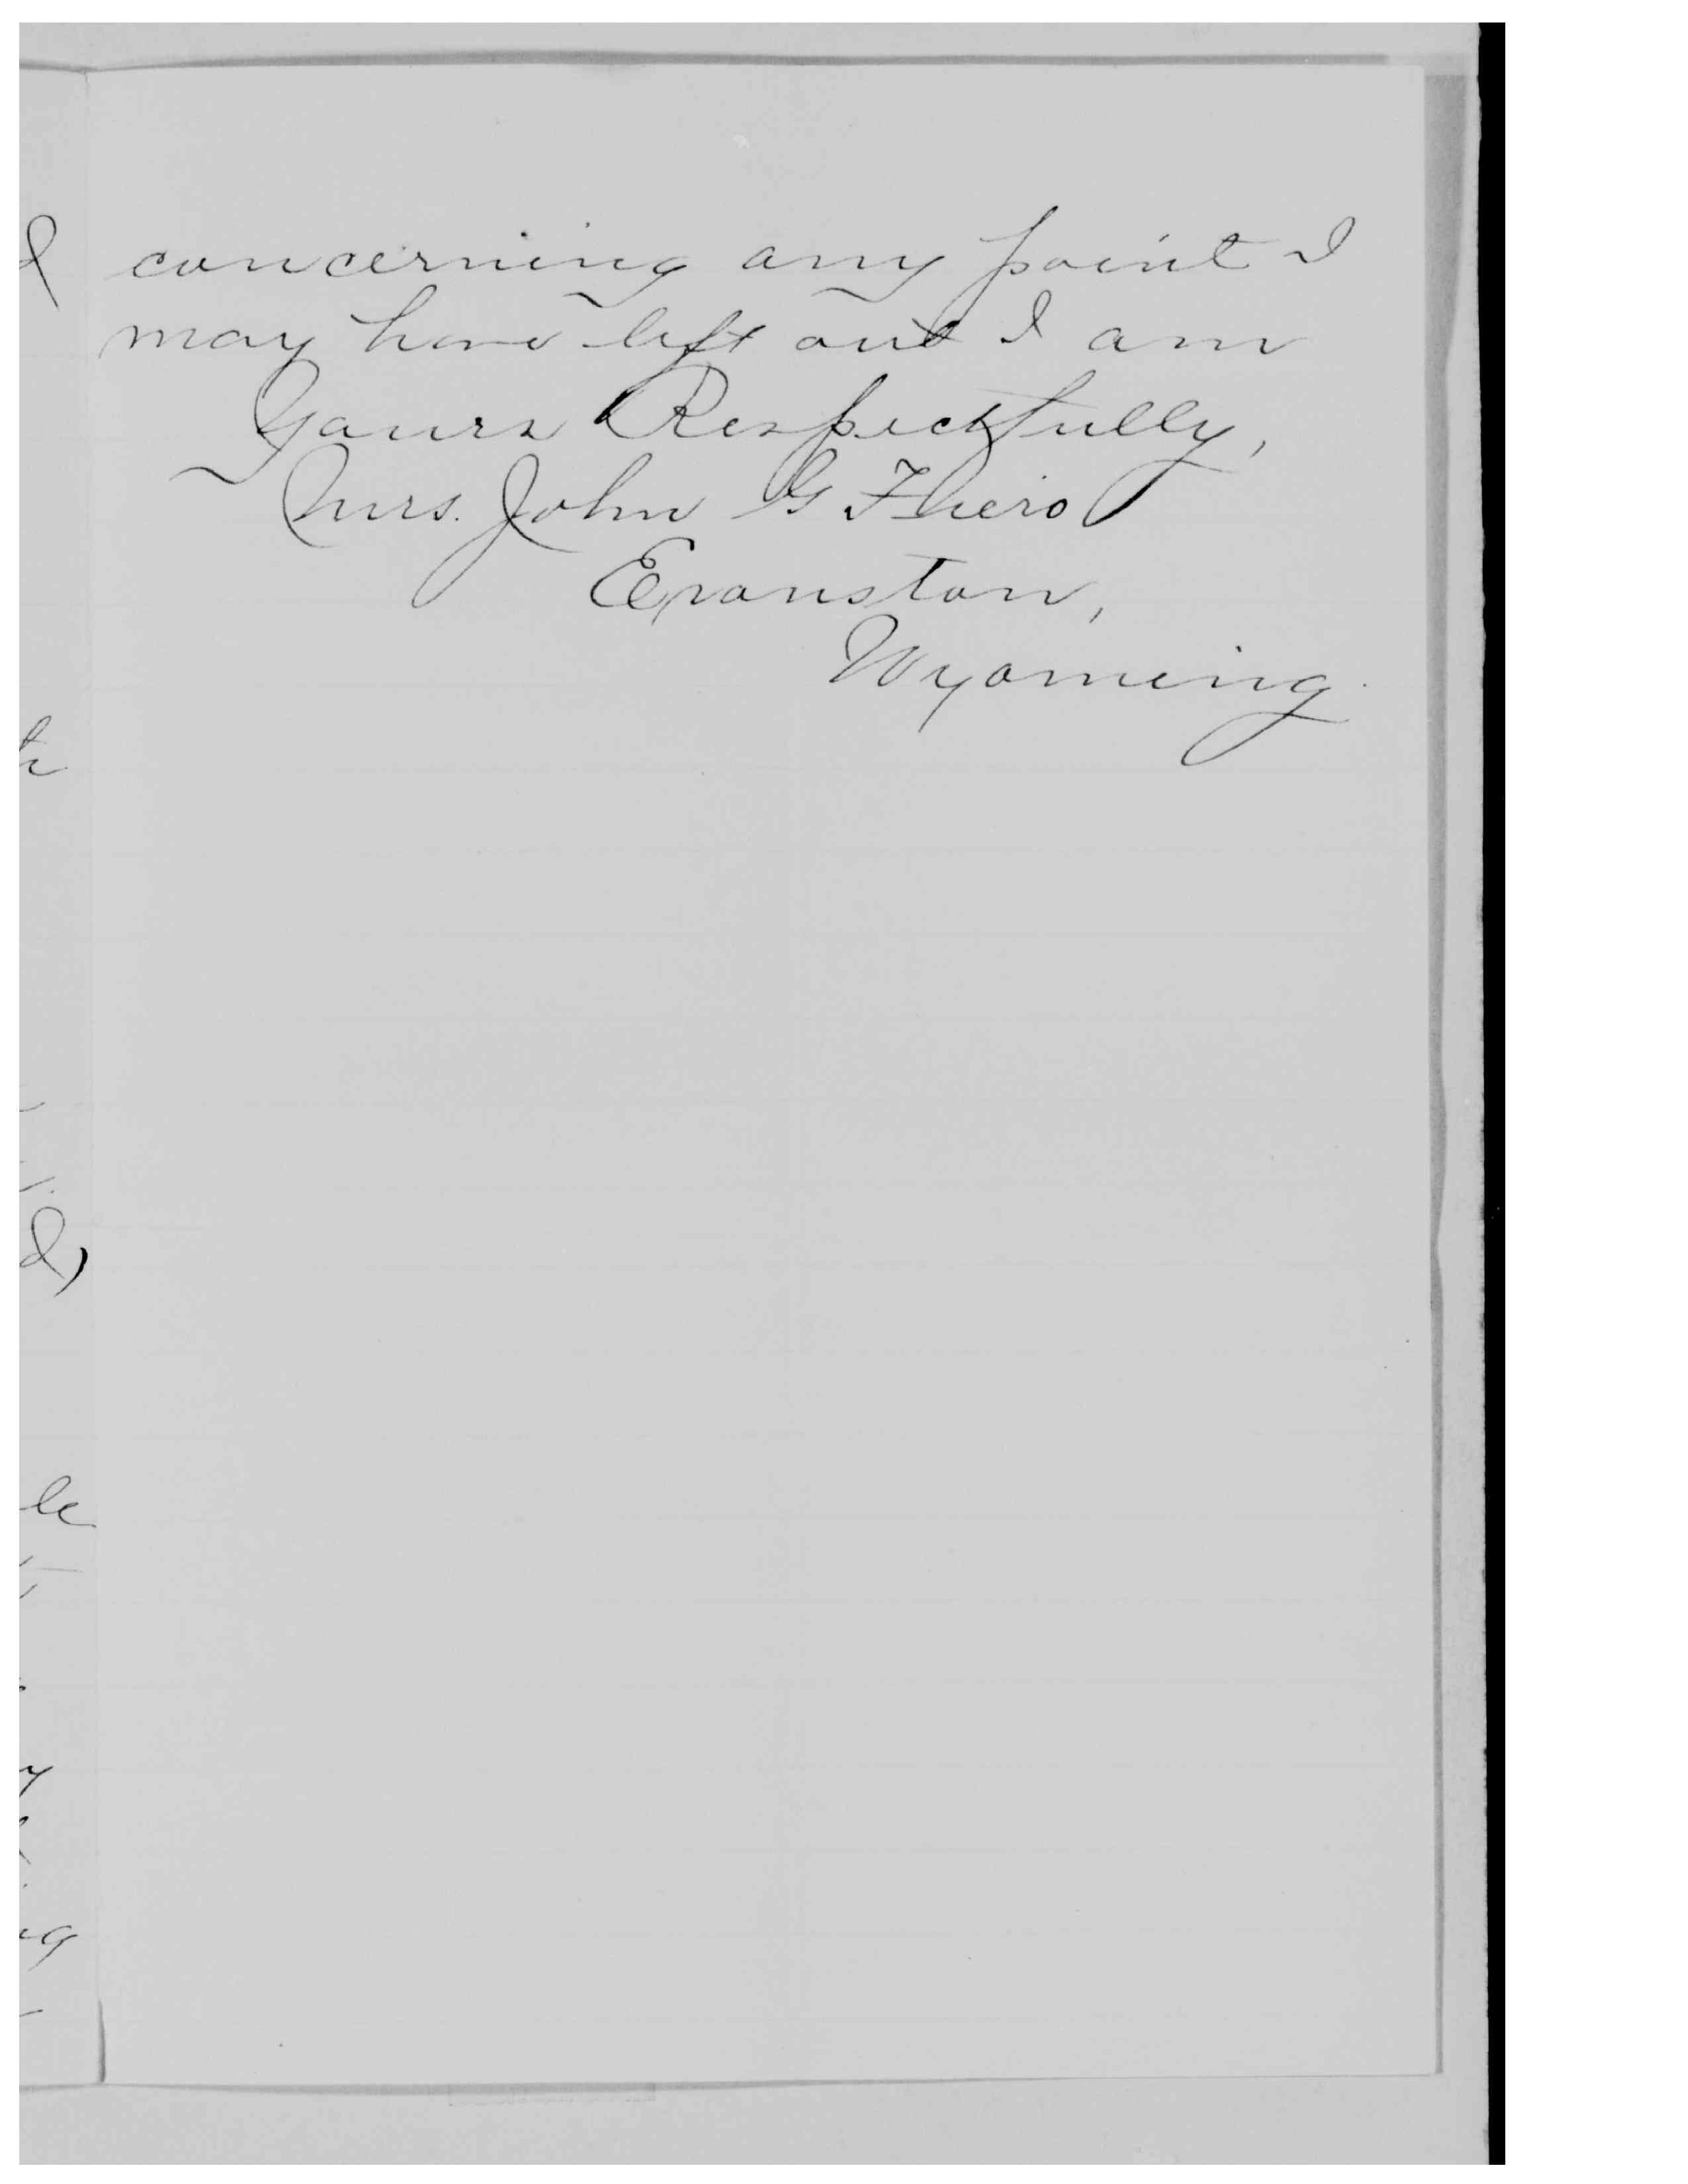 concerning any point I
may have left out I am
Yours Respectfully,
Mrs. John G Fhero
Evanston,
Wyoming.